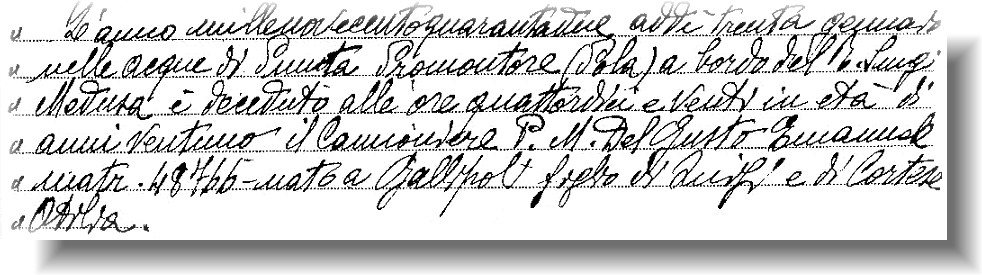 " L'anno millenovecentoquarantadue addì trenta gennaio
" nelle acque di Punta Promontore (Pola) a bordo del
" Medusa è deceduto alle ore quattordici e venti in età di
" anni ventuno il Cannoniere P. M. Del Gusto Emanuele
" matr. 48766 - nato a Gallipoli figlio di Luigi e di Cortese
" Otilia.